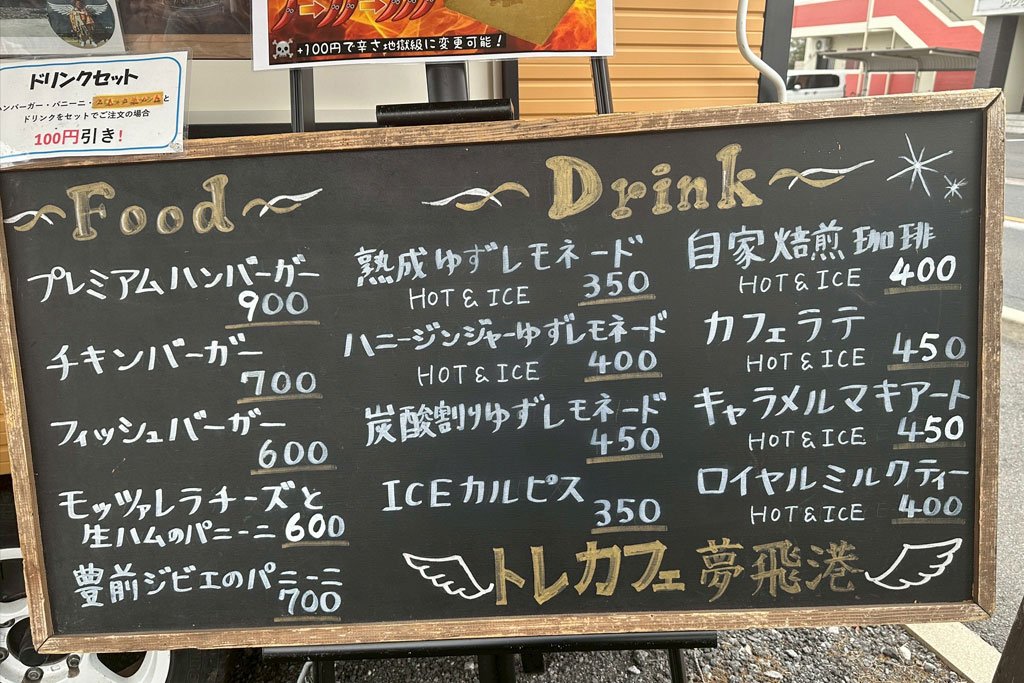 +100円で辛さ地獄級に変更可能！
ドリンクセット
ンバーガー・パニーニ・
と
ドリンクをセットでご注文の場合
100円引き！
Food
プレミアムハンバーガー
900
チキンバーガー
700
フィッシュバーガー
600
モッツァレラチーズと
生ハムのパニーニ 600
豊前ジビエのパニーニ
700
Drink
熟成ゆずレモネード
HOT & ICE 350
ハニージンジャーゆずレモネード
HOT & ICE 400
炭酸割りゆずレモネード
450
ICEカルピス
350
自家焙煎珈琲
HOT & ICE 400
カフェラテ
HOT & ICE 450
キャラメルマキアート
HOT & ICE 450
ロイヤルミルクティー
HOT & ICE 400
トレカフェ夢飛港